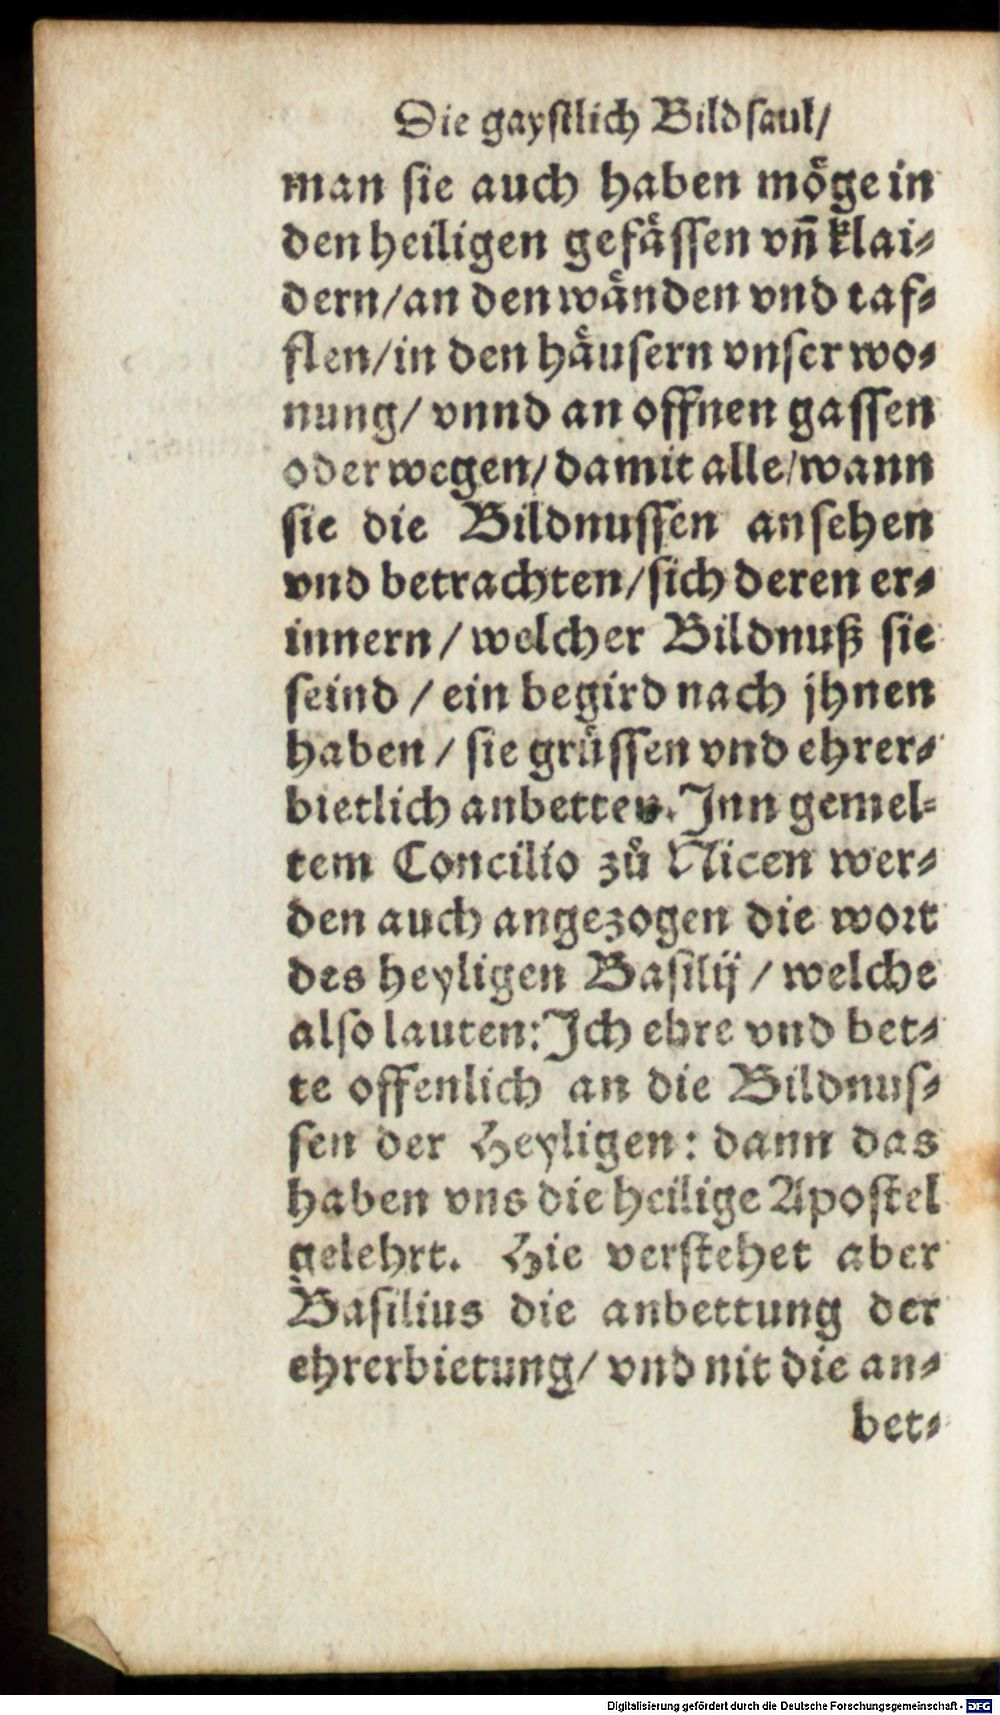 Die gaystlich Bildsaul/
man sie auch haben möge in
den heiligen gefässen vn̄ klai⸗
dern/an den wänden vnd taf⸗
flen/in den häusern vnser wo⸗
nung/ vnnd an offnen gassen
oder wegen/damit alle/wann
sie die Bildnussen ansehen
vnd betrachten/sich deren er⸗
innern/welcher Bildnuß sie
seind/ein begird nach jhnen
haben/sie grüssen vnd ehrer⸗
bietlich anbetten. Inn gemel⸗
tem Concilio zů Nicen wer⸗
den auch angezogen die wort
des heyligen Basilij/welche
also lauten: Ich ehre vnd bet⸗
te offenlich an die Bildnus⸗
sen der Heyligen: dann das
haben vns die heilige Apostel
gelehrt. Hie verstehet aber
Basilius die anbettung der
ehrerbietung/ vnd nit die an⸗
bet⸗
Digitalisierung gefördert durch die Deutsche Forschungsgemeinschaft - DFG